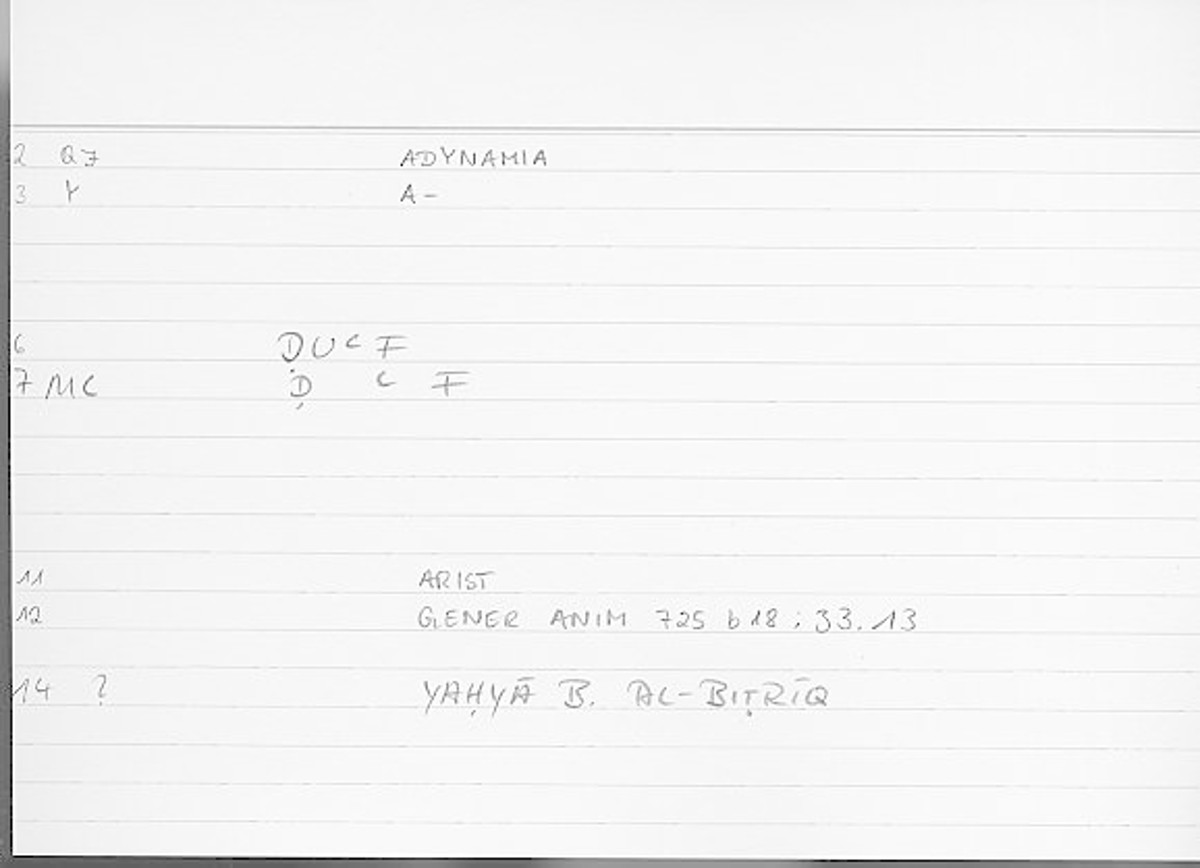 2 Q7 ADYNAMIA
3 Y A-
6 ḌUʿF
7 MC Ḍ ʿ F
11 ARIST
12 GENER ANIM 725 b 18 ; 33.13
14 ? YAḤYĀ B. AL-BIṬRĪQ